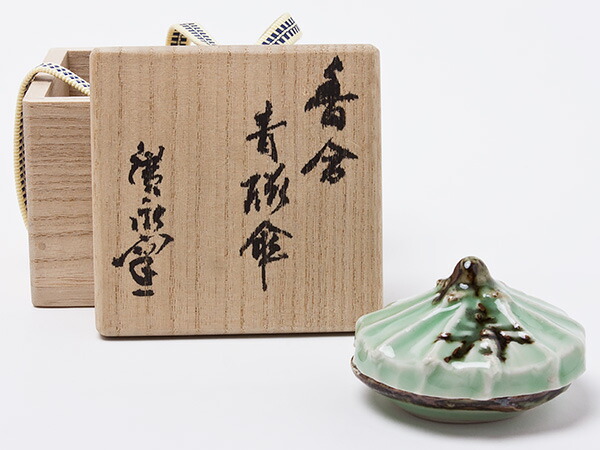 香合
青磁傘
廣永窯